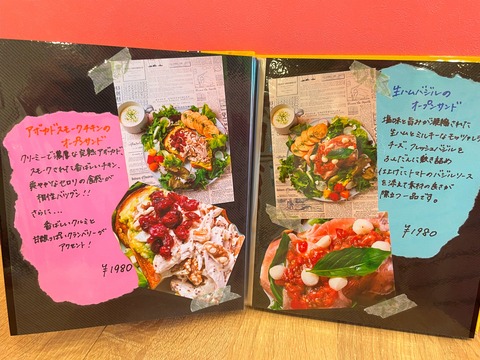 アボカドスモークチキンの
オープンサンド
クリーミーで濃厚な完熟アボカド
スモークされた香ばしいチキン、
爽やかなセロリの食感が
相性バツグン!!
さらに...
香ばしいクルミと
甘酸っぱいクランベリーが
アクセント!
¥1980
生ハムバジルの
オープンサンド
塩味と旨みが凝縮された
生ハムとミルキーなモッツァレラ
チーズ、フレッシュバジルを
ふんだんに敷き詰め
仕上げにトマトのバジルソース
を添えて素材の良さが
際立つ一品です。
¥1980